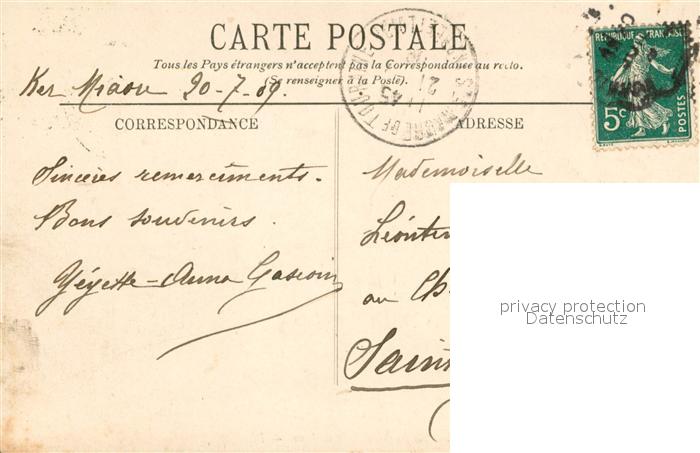 CARTE POSTALE
Tous les Pays étrangers n'acceptent pas la Correspondance au recto.
(Se renseigner à la Poste).
Ker 20-7-09.
CORRESPONDANCE
ADRESSE
RÉPUBLIQUE FRANÇAISE
5c
POSTES
Sincères remerciments.
Bons souvenirs.
Yéyette-Anna
Mademoiselle
au Ch
Sain
privacy protection
Datenschutz